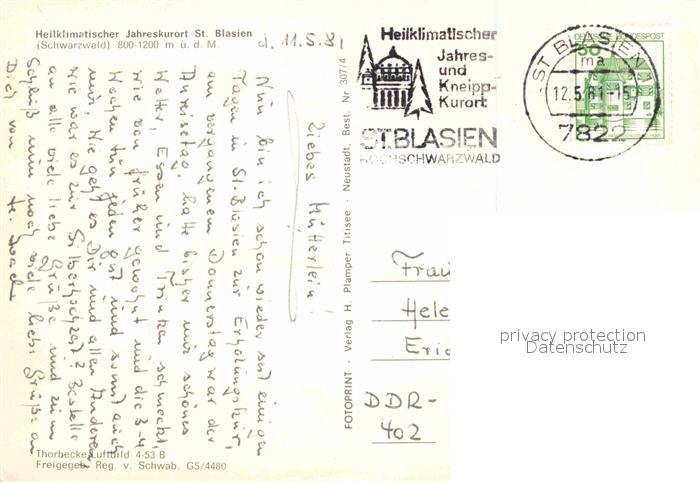 Heilklimatischer Jahreskurort St. Blasien
(Schwarzwald) 800-1200 m ü. d. M.
d. 11.5.81
Liebes Mütterlein!
Nun bin ich schon wieder seit einigen
Tagen in St. Blasien zur Erholungskur,
am vergangenem Donnerstag war der
Anreisetag, hatte bisher nur schönes
Wetter, Essen und Trinken schmeckt,
wie von früher gewohnt und die 3-4
Wochen tun jedem gut und somit auch
mir, Wie geht es Dir und allen Anderen
wie war es zur Silberhochzeit? Bestelle
an alle viele liebe Grüße und zum
Schluß nun noch viele liebe Grüße an
Dich von
Thorbecke-Luftbild 4-53 B
Freigegeb. Reg. v. Schwab. G5/4480
FOTOPRINT - Verlag H. Plamper Titisee - Neustadt, Best. Nr 307/4
Heilklimatischer
Jahres-
und
Kneipp-
Kurort
ST.BLASIEN
HOCHSCHWARZWALD
ST BLASIEN
ma
12.5.81-15
7822
DEUTSCHE BUNDESPOST
50
Frau
Hele
Eric
DDR-
402
privacy protection
Datenschutz